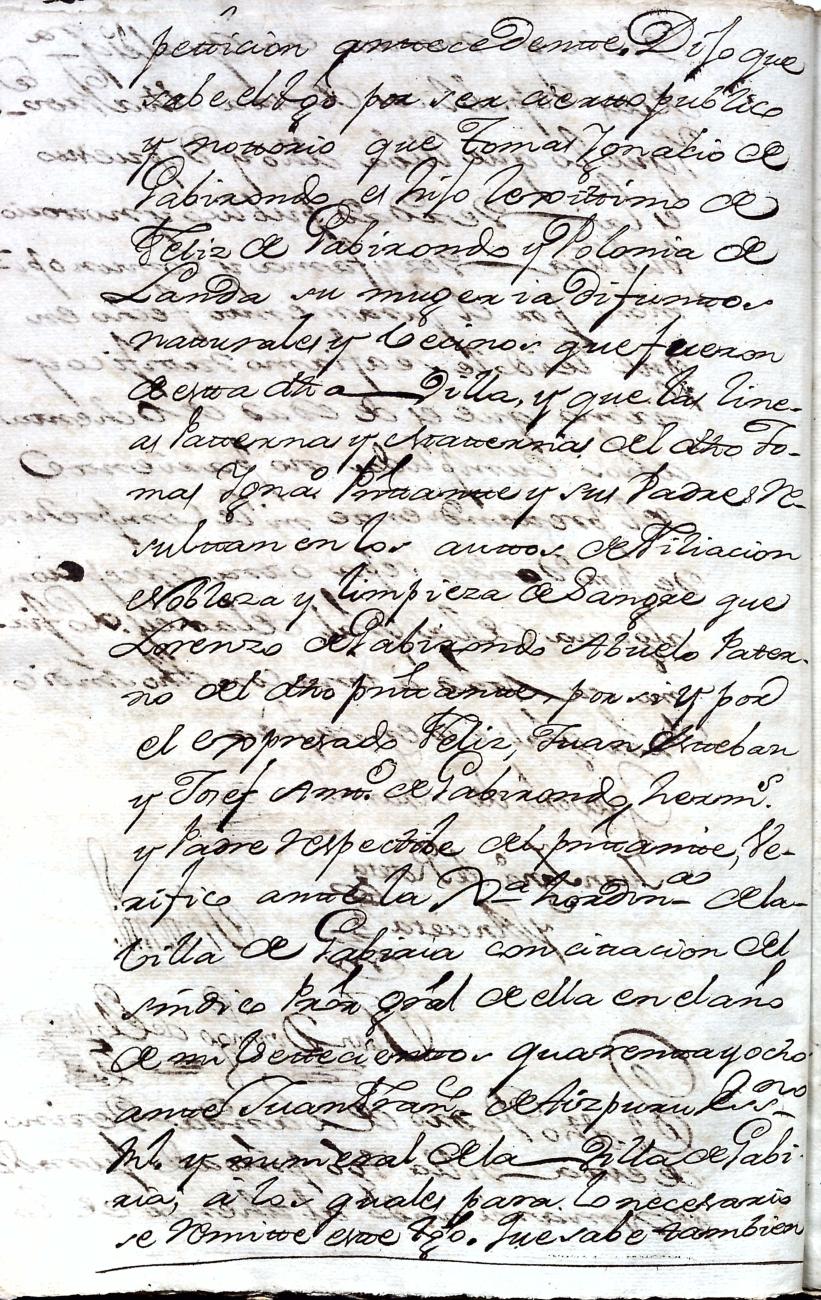 petticion anttecedentte. Dijo que
sabe el tgo por ser ciertto publico
y nottorio que Tomas Ygnacio de
Gabirondo es hijo lexittimo de
Feliz de Gabirondo y Polonia de
Landa su muger ia difunttos
natturales y becinos que fueron
de estta dha Villa, y que las line-
as Patternas y Matternas del dho To-
mas Ygnaº Presttantte y sus Padres Re-
sulttan en los auttos de Filiacion
Nobleza y limpieza de Sangre que
Lorenzo de Gabirondo Abuelo Pater-
no del dho presttantte, por si y por
el expresado Feliz, Juan Esteban
y Josef Antt.º de Gabirondo, herm.s
y Padre Respecttibe del presttantte, Ve-
rifico antte la Xª hordinª dela
billa de Gabiria con cittacion del
sindico Pror gral de ella en el año
de mil settecienttos quarentta y ocho
antte Juan Franco de Aizpuru Essno
Rl. y numeral de la Villa de Gabi-
ria, a los quales para lo necesario
se Remitte estte tgo. Que sabe ttambien